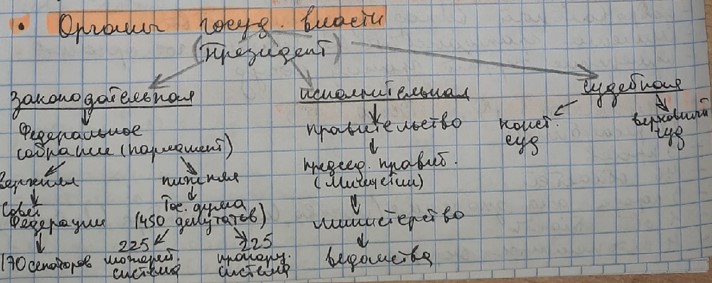 • Органы госуд. власти
(президент)
законодательная
Федеральное
собрание (парламент)
верхняя
Совет
Федерации
170 сенаторов
нижняя
Гос. дума
(450 депутатов)
225
мажорит.
система
225
пропорц.
система
исполнительная
правительство
председ. правит.
(Мишустин)
министерство
ведомства
судебная
конст.
суд
верховный
суд